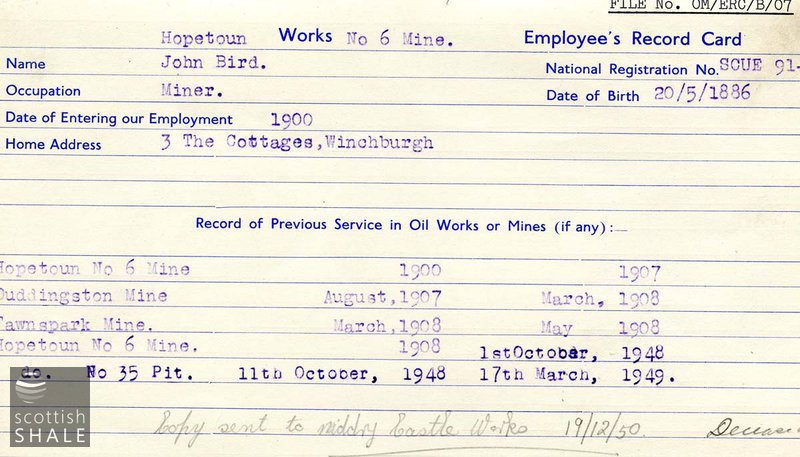 FILE No. OM/ERC/B/07
Hopetoun Works No 6 Mine. Employee's Record Card
Name John Bird. National Registration No. SCUE 91-
Occupation Miner. Date of Birth 20/5/1886
Date of Entering our Employment 1900
Home Address 3 The Cottages,Winchburgh
Record of Previous Service in Oil Works or Mines (if any):—
Hopetoun No 6 Mine 1900 1907
Duddingston Mine August,1907 March, 1908
Tawnspark Mine. March,1908 May 1908
Hopetoun No 6 Mine. 1908 1stOctober, 1948
do. No 35 Pit. 11th October, 1948 17th March, 1949.
scottish
SHALE
Copy sent to Niddry Castle Works 19/12/50. Deceased